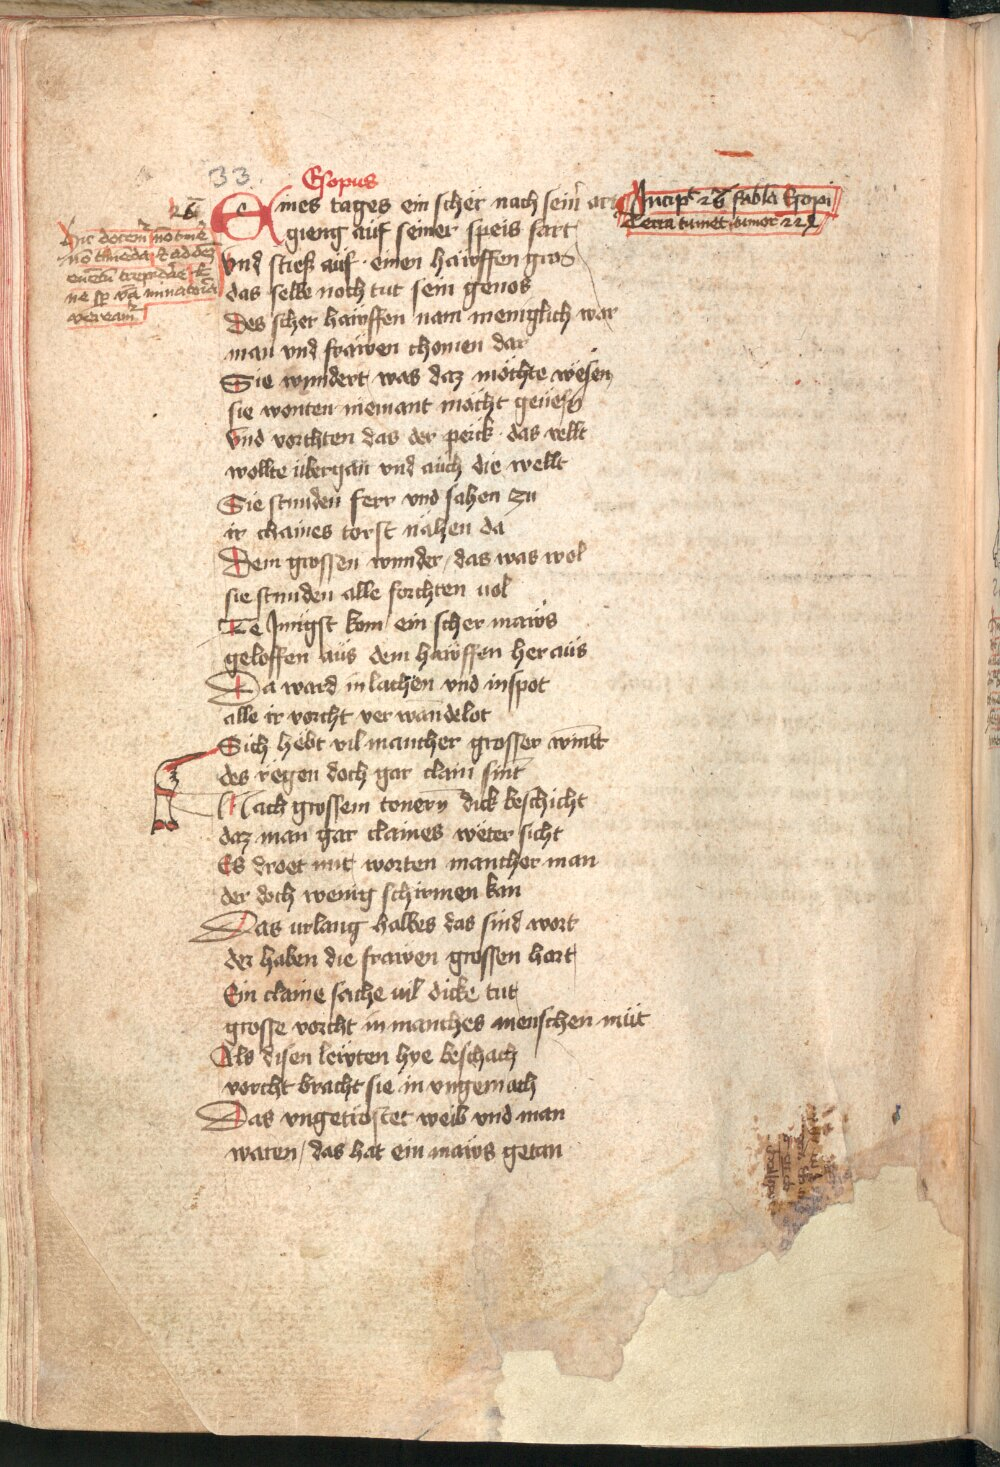 33.
Esopus
26
Hic docemur non timere
non timenda et ad omnem
ne sermonum minatoria
vereamur
Incipit 26 fabla Esopi
Terra tumet tumor etc
Eines tages ein scher nach seiner art
gieng auf seiner speis fart
vnd stiesz auf einen hawffen gros
das selbe noch tut sein genos
Des scher hawffen nam meniglich war
man vnd frawen chomen dar
Sie wundert was daz möchte wesen
sie wonten niemant möcht genesen
vnd vorchten das der perck das vellt
wollte übergan vnd auch die wellt
Sie stunden ferr vnd sahen zu
ir chaines torst nähen da
Dem grossen wunder / das was wol
sie stunden alle forchten uol
Ze Jungst kom ein scher maws
geloffen aus dem hawffen heraus
Da ward in lachen vnd in spot
alle ir vorcht verwandelot
Sich hebt vil mancher grosser wint
des regen doch gar clain sint
Nach grossem tonern dick beschicht
daz man gar claines weter sicht
Es droet mit worten mancher man
der doch wenig schirmen kan
Das urlaug halbes das sind wort
der haben die frawen grossen hort
Ein claine sache uil dicke tut
grosse vorcht in manches menschen müt
Als disen lewten hye beschach
vorcht bracht sie in vngemach
Das vngetrostet weib vnd man
waren / das hat ein maws getan